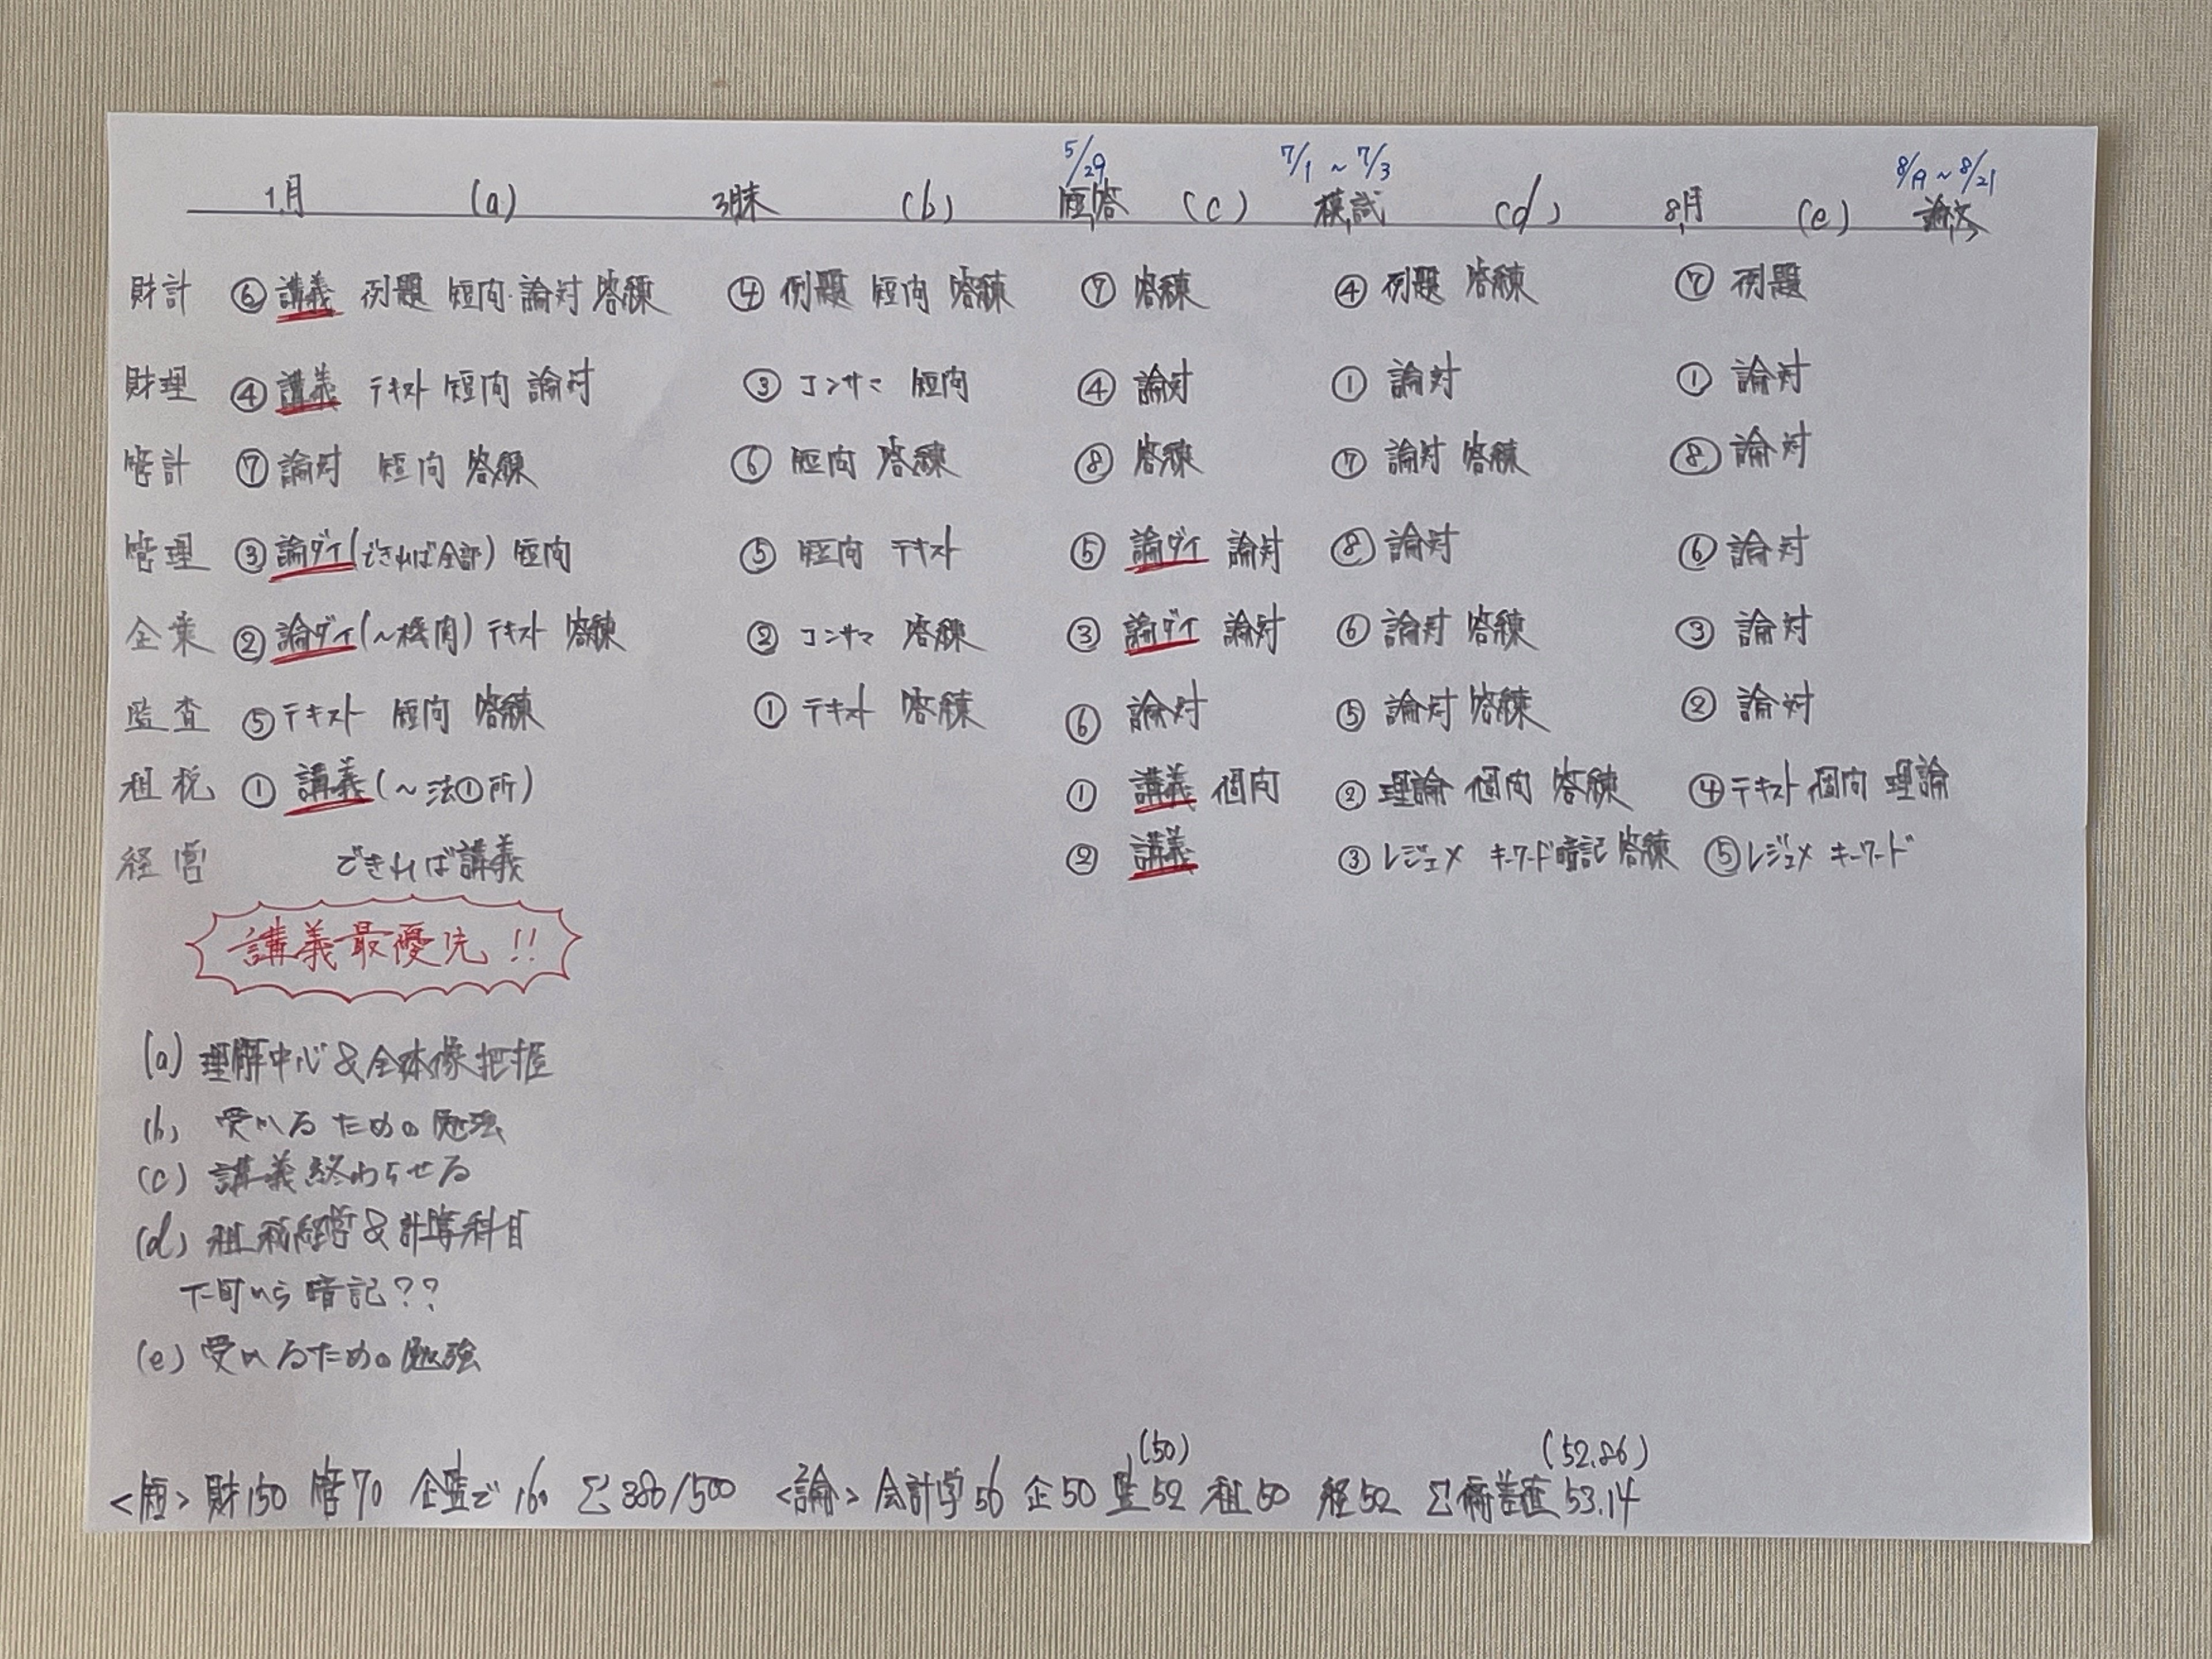 5/29 7/1 ~ 7/3 8/19 ~ 8/21
1月 (a) 3月末 (b) 短答 (c) 模試 (d) 8月 (e) 論文
財計 ⑥ 講義 例題 短問・論対 答練 ④ 例題 短問 答練 ⑦ 答練 ④ 例題 答練 ⑦ 例題
財理 ④ 講義 テキスト 短問 論対 ③ コンサマ 短問 ④ 論対 ① 論対 ① 論対
管計 ⑦ 論対 短問 答練 ⑥ 短問 答練 ⑧ 答練 ⑦ 論対 答練 ⑧ 論対
管理 ③ 論ダイ(できれば全部) 短問 ⑤ 短問 テキスト ⑤ 論ダイ 論対 ⑧ 論対 ⑥ 論対
企業 ② 論ダイ(~機関) テキスト 答練 ② コンサマ 答練 ③ 論ダイ 論対 ⑥ 論対 答練 ③ 論対
監査 ⑤ テキスト 短問 答練 ① テキスト 答練 ⑥ 論対 ⑤ 論対 答練 ② 論対
租税 ① 講義(~法①所) ① 講義 個問 ② 理論 個問 答練 ④ テキスト 個問 理論
経営 できれば講義 ② 講義 ③ レジュメ キーワード暗記 答練 ⑤ レジュメ キーワード
講義最優先!!
(a) 理解中心&全体像把握
(b) 受かるための勉強
(c) 講義終わらせる
(d) 租税経営&計算科目
下旬から暗記??
(e) 受かるための勉強
(50) (52.86)
<短> 財150 管70 企監で160 Σ380/500 <論> 会計学56 企50 監52 租50 経52 Σ偏差値53.14